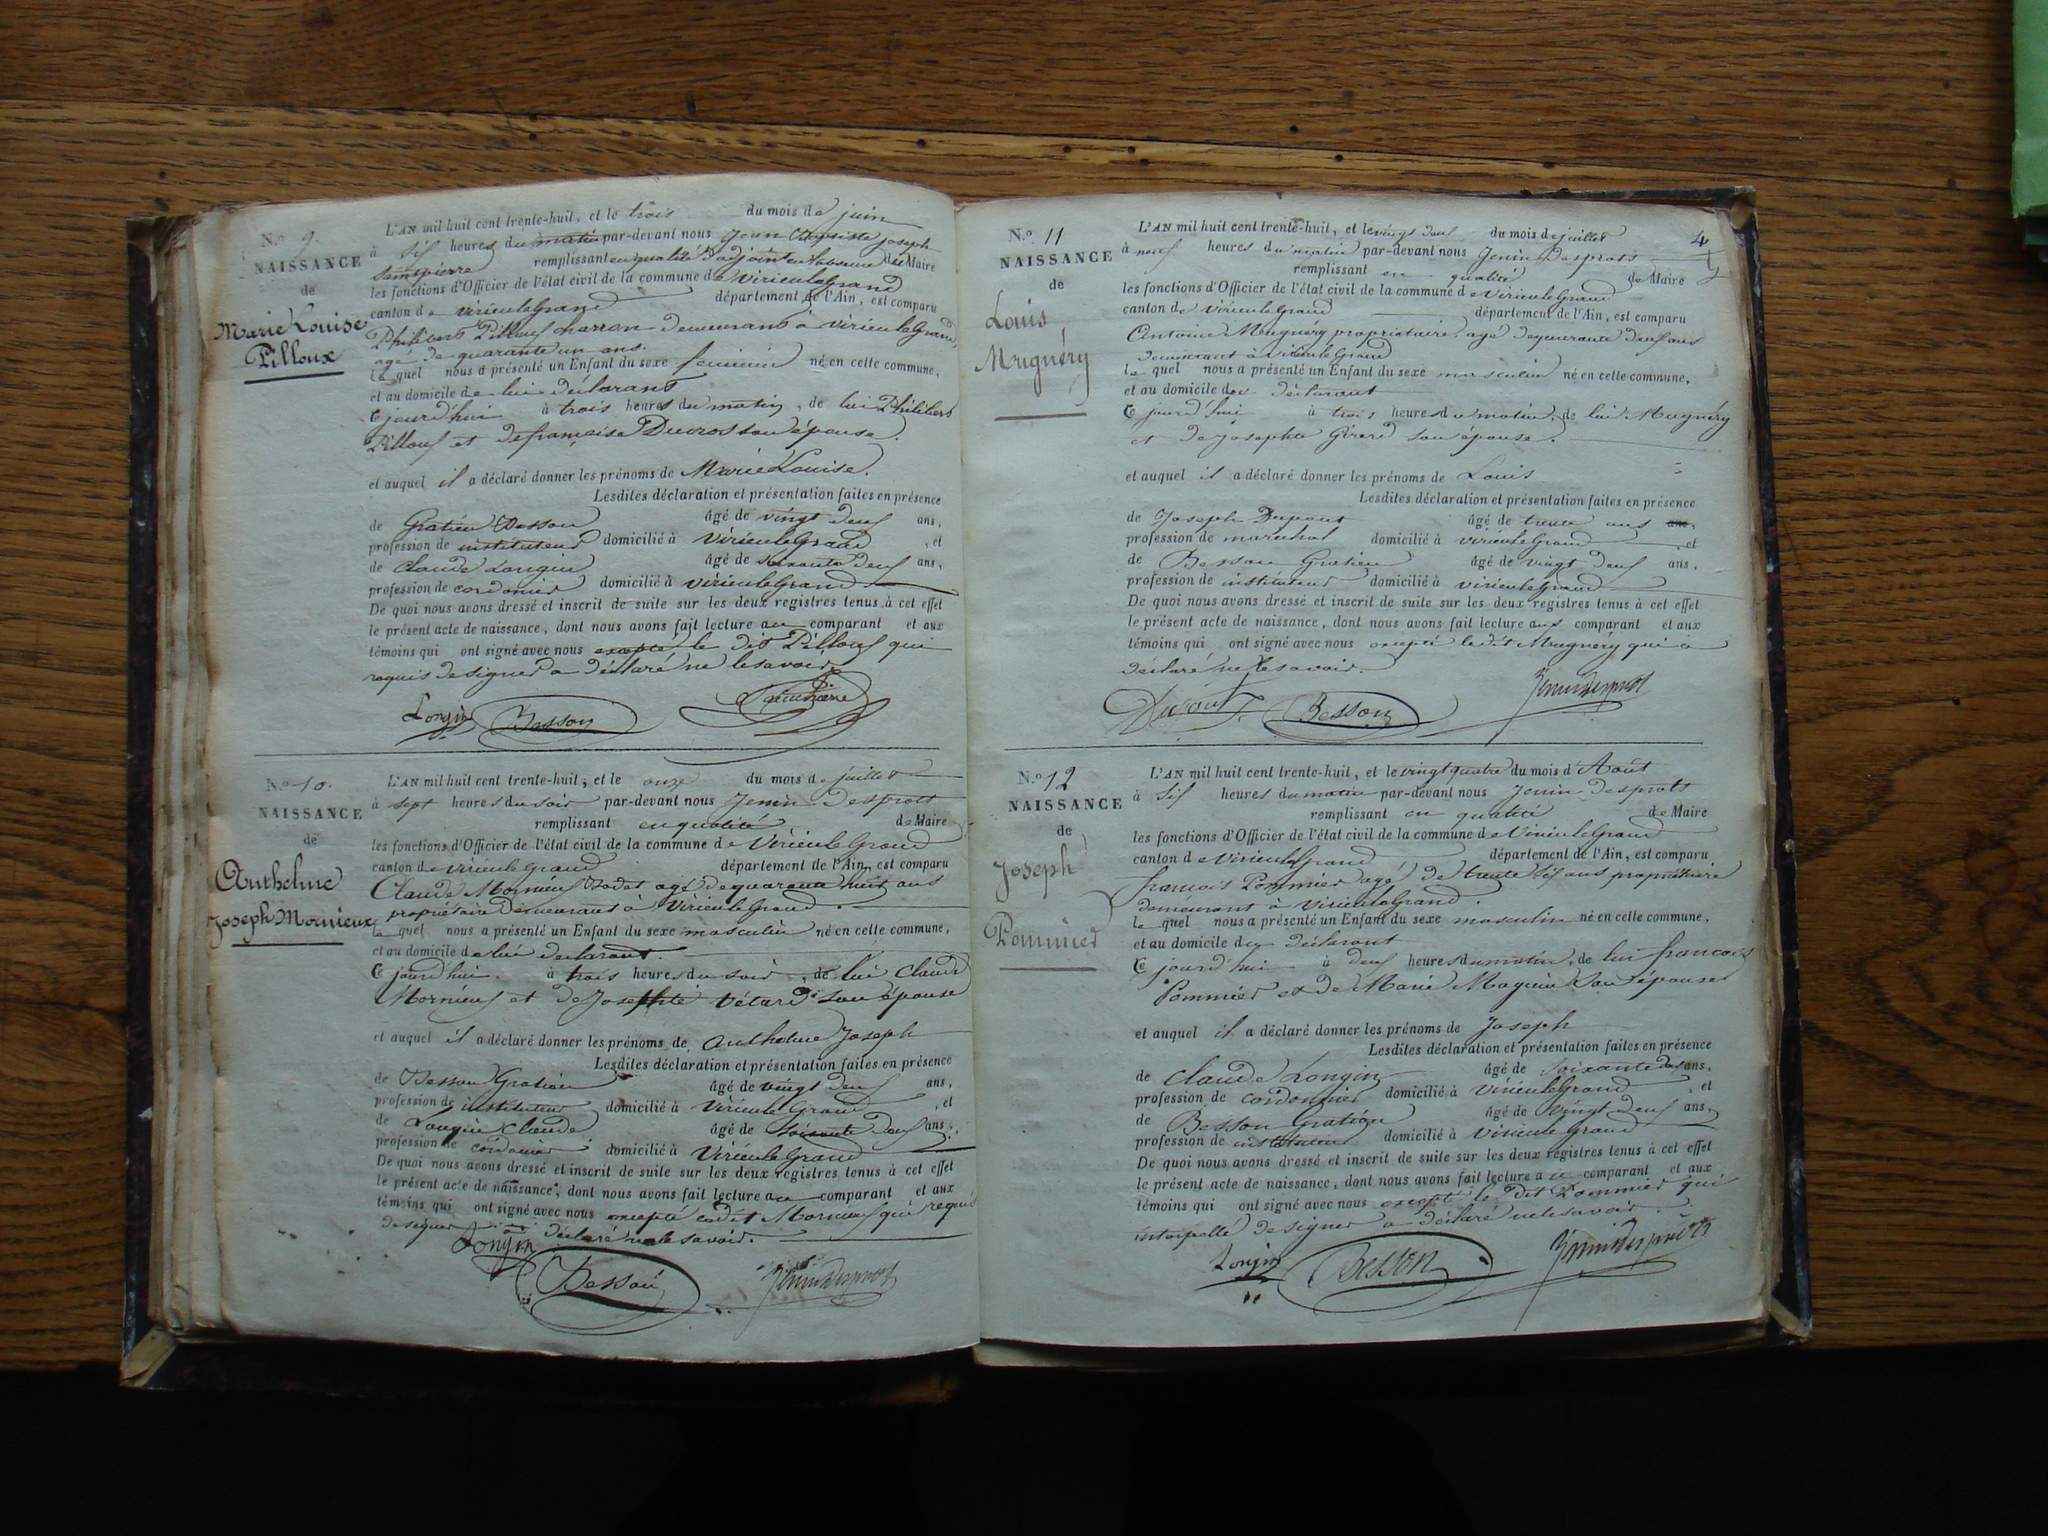 N.º 9.
NAISSANCE
de
Marie Louise
Pilloux
L'AN mil huit cent trente-huit, et le trois du mois de juin
à six heures du matin par-devant nous Jean Baptiste Joseph
Saintpierre remplissant en qualité d'adjoint en l'absence de Maire
les fonctions d'Officier de l'état civil de la commune de Virieu le Grand
canton de Virieu le Grand département de l'Ain, est comparu
Philibert Pilloux charron demeurant à Virieu le Grand,
agé de quarante un ans.
le quel nous a présenté un Enfant du sexe feminin né en cette commune,
et au domicile de lui déclarant
Ce jourd'hui à trois heures du matin, de lui Philibert
Pilloux et de françoise Ducros son épouse.
et auquel il a déclaré donner les prénoms de Marie Louise.
Lesdites déclaration et présentation faites en présence
de Gratien Besson âgé de vingt deux ans,
profession de instituteur domicilié à Virieu le Grand, et
de Claude Longin âgé de soixante deux ans,
profession de cordonier domicilié à Virieu le Grand
De quoi nous avons dressé et inscrit de suite sur les deux registres tenus à cet effet
le présent acte de naissance, dont nous avons fait lecture au comparant et aux
témoins qui ont signé avec nous excepté le dit Pilloux qui
requis de signer a déclaré ne le savoir
Longin Besson Saintpierre
N.º 10.
NAISSANCE
de
Anthelme
Joseph Mornieux
L'AN mil huit cent trente-huit, et le onze du mois de juillet
à sept heures du soir par-devant nous Jenin Desprots
remplissant en qualité de Maire
les fonctions d'Officier de l'état civil de la commune de Virieu le Grand
canton de Virieu le Grand département de l'Ain, est comparu
Claude Mornieux agé de quarante huit ans
propriétaire demeurant à Virieu le Grand.
le quel nous a présenté un Enfant du sexe masculin né en cette commune,
et au domicile de lui déclarant.
Ce jourd'hui à trois heures du soir, de lui Claude
Mornieux et de Josephte Vétard son épouse
et auquel il a déclaré donner les prénoms de Anthelme Joseph
Lesdites déclaration et présentation faites en présence
de Besson Gratien âgé de vingt deux ans,
profession de instituteur domicilié à Virieu le Grand, et
de Longin Claude âgé de soixante deux ans,
profession de cordonier domicilié à Virieu le Grand
De quoi nous avons dressé et inscrit de suite sur les deux registres tenus à cet effet
le présent acte de naissance, dont nous avons fait lecture au comparant et aux
témoins qui ont signé avec nous excepté ledit Mornieux qui requis
de signer a déclaré ne le savoir.
Longin Besson Jenin Desprots
N.º 11
NAISSANCE
de
Louis
Muguéry
4
L'AN mil huit cent trente-huit, et le vingt deux du mois de juillet
à neuf heures du matin par-devant nous Jenin Desprots
remplissant en qualité de Maire
les fonctions d'Officier de l'état civil de la commune de Virieu le Grand
canton de Virieu le Grand département de l'Ain, est comparu
Antoine Muguéry propriétaire agé de quarante deux ans
demeurant à Virieu le Grand
le quel nous a présenté un Enfant du sexe masculin né en cette commune,
et au domicile du déclarant
Ce jourd'hui à trois heures du matin, de lui Muguéry
et de Josephte Girard son épouse.
et auquel il a déclaré donner les prénoms de Louis
Lesdites déclaration et présentation faites en présence
de Joseph Dupont âgé de trente ans ans,
profession de maréchal domicilié à Virieu le Grand, et
de Besson Gratien âgé de vingt deux ans,
profession de instituteur domicilié à Virieu le Grand
De quoi nous avons dressé et inscrit de suite sur les deux registres tenus à cet effet
le présent acte de naissance, dont nous avons fait lecture aux comparant et aux
témoins qui ont signé avec nous excepté le dit Muguéry qui a
déclaré ne le savoir.
Dupont Besson Jenin Desprots
N.º 12
NAISSANCE
de
Joseph
Pommier
L'AN mil huit cent trente-huit, et le vingt quatre du mois d'Août
à six heures du matin par-devant nous Jenin Desprots
remplissant en qualité de Maire
les fonctions d'Officier de l'état civil de la commune de Virieu le Grand
canton de Virieu le Grand département de l'Ain, est comparu
francois Pommier agé de trente six ans propriétaire
demeurant à Virieu le Grand.
le quel nous a présenté un Enfant du sexe masculin né en cette commune,
et au domicile du déclarant
Ce jourd'hui à deux heures du matin, de lui francois
Pommier et de Marie Magnin son épouse
et auquel il a déclaré donner les prénoms de Joseph
Lesdites déclaration et présentation faites en présence
de Claude Longin âgé de soixante deux ans,
profession de cordonnier domicilié à Virieu le Grand, et
de Besson Gratien âgé de vingt deux ans,
profession de instituteur domicilié à Virieu le Grand
De quoi nous avons dressé et inscrit de suite sur les deux registres tenus à cet effet
le présent acte de naissance, dont nous avons fait lecture au comparant et aux
témoins qui ont signé avec nous excepté le dit Pommier qui
interpellé de signer a déclaré ne le savoir.
Longin Besson Jenin Desprots